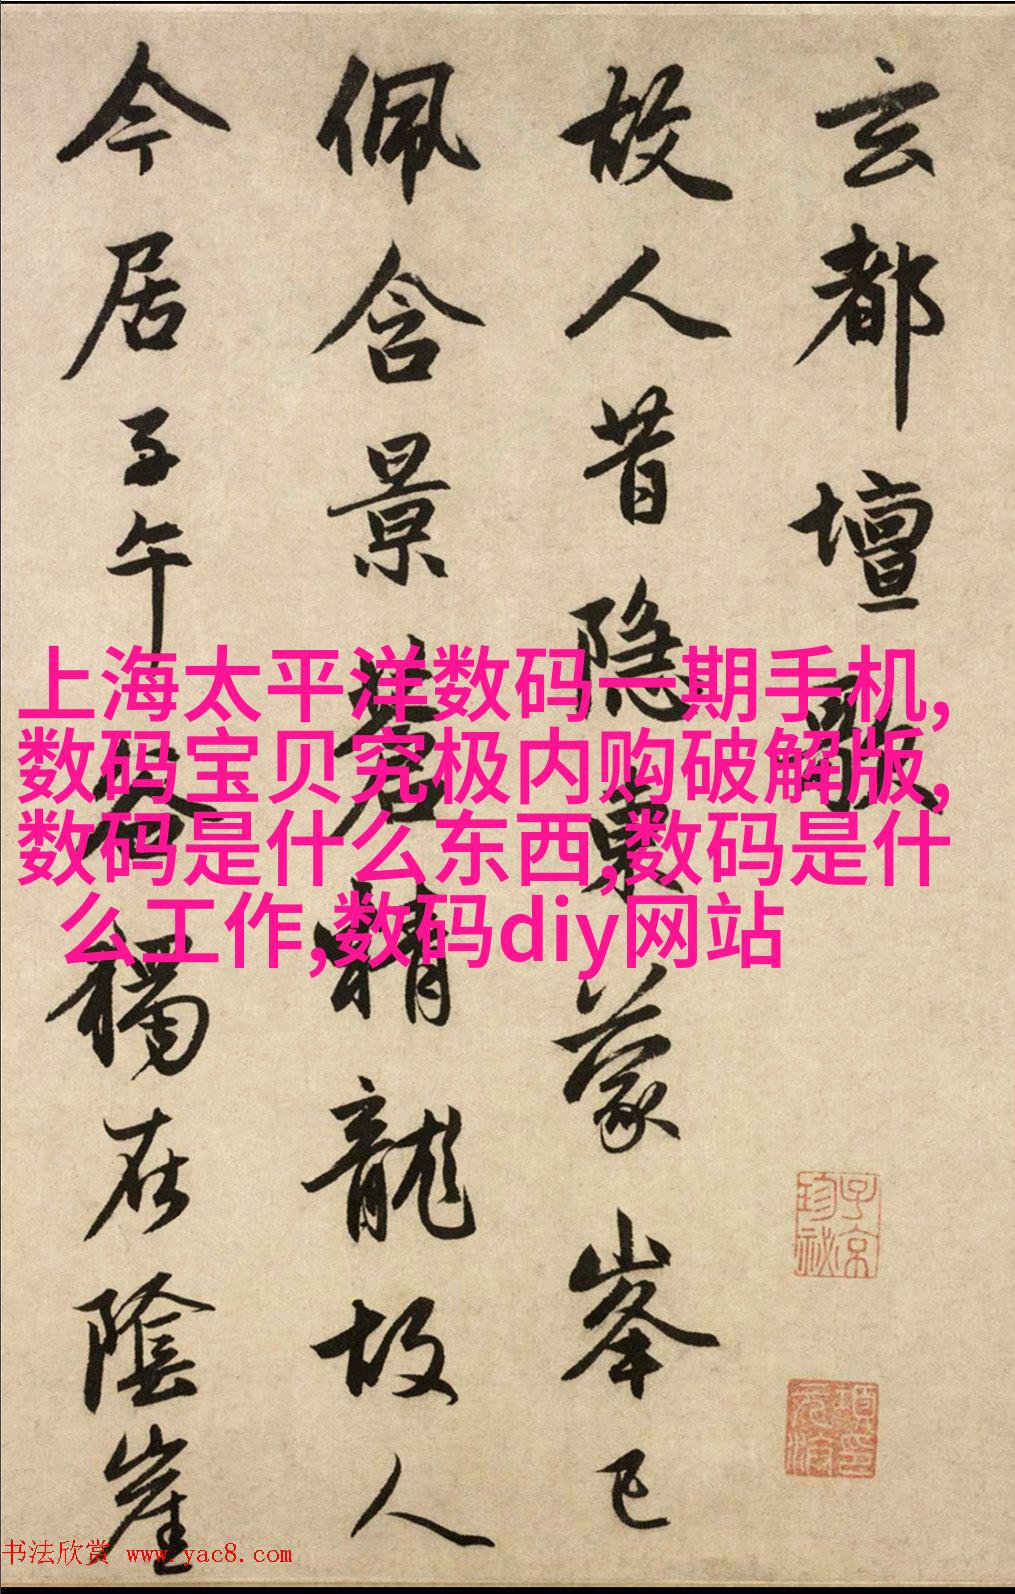 玄都壇歌
故人昔隐東蒙峯已
佩含景蒼精龍故人
今居子午谷獨在陰崖
上海太平洋数码一期手机,
数码宝贝究极内购破解版,
数码是什么东西,数码是什
么工作,数码diy网站
子京
珍祕
項元汴印
书法欣赏 www.yac8.com